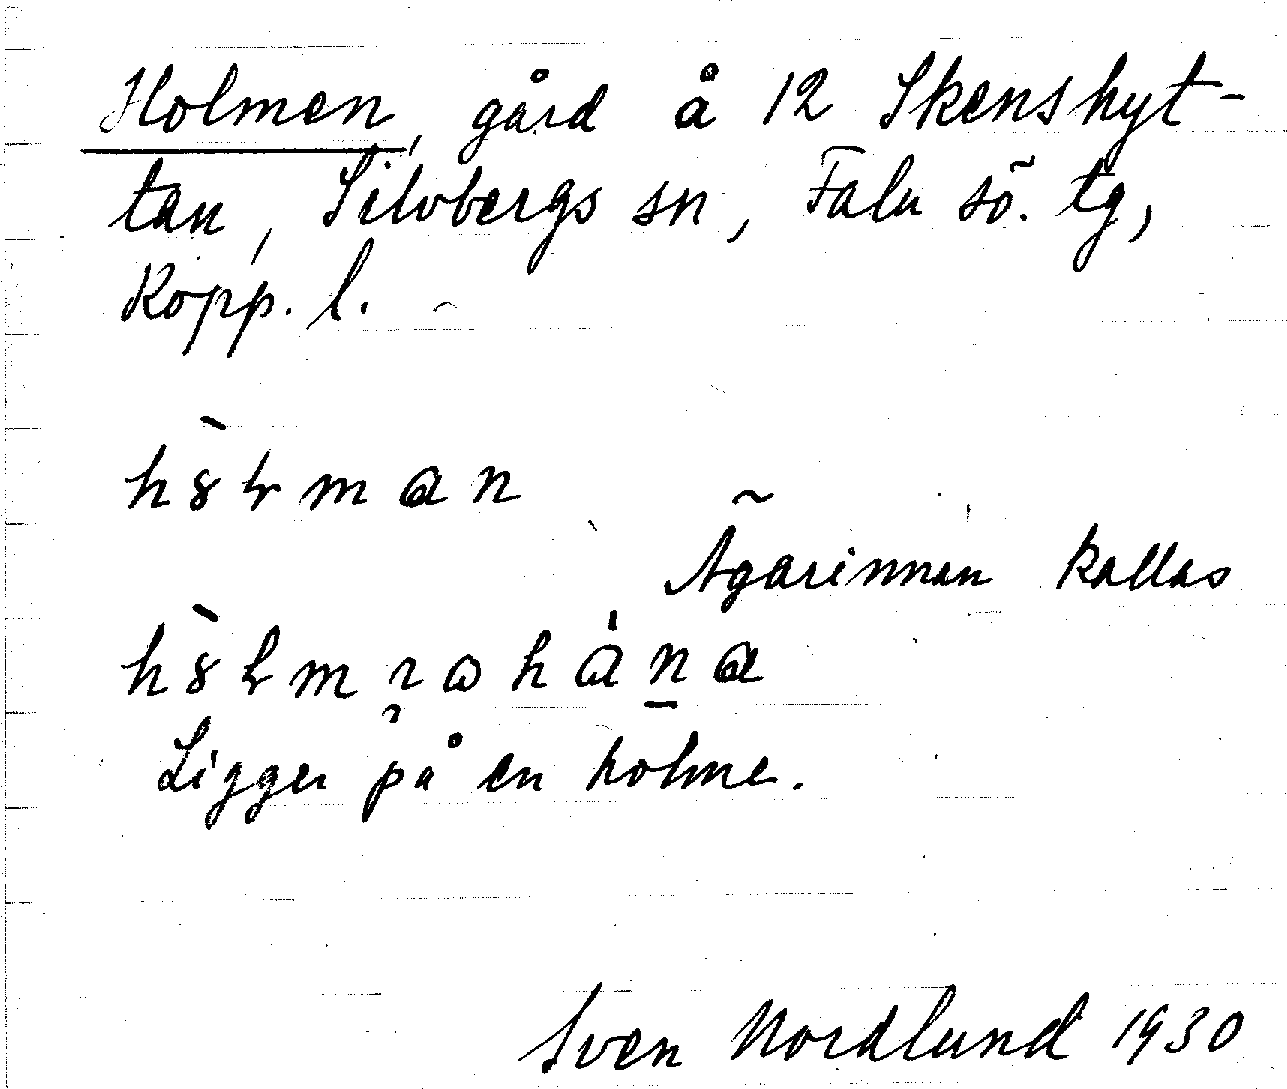 Holmen, gård å 12 Skenshyt-
tan, Silvbergs sn, Falu sö. tg,
Kopp. l.
Ägarinnan kallas
Ligger på en holme.
Sven Nordlund 1930